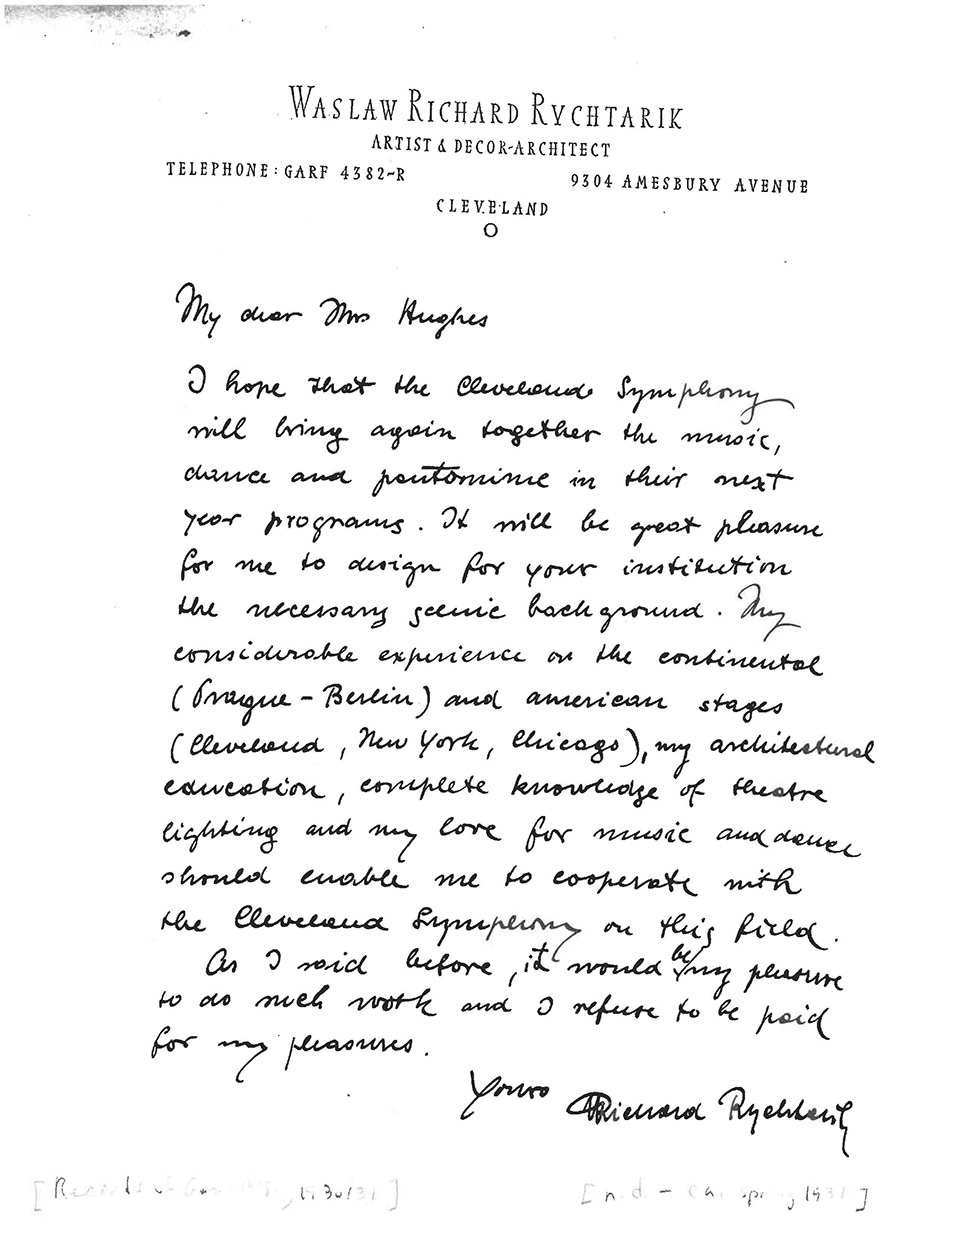 WASLAW RICHARD RYCHTARIK
ARTIST & DECOR-ARCHITECT
TELEPHONE: GARF 4382-R
9304 AMESBURY AVENUE
CLEVELAND
My dear Mrs Hughes
I hope that the Cleveland Symphony
will bring again together the music,
dance and pantomime in their next
year programs. It will be great pleasure
for me to design for your institution
the necessary scenic background. My
considerable experience on the continental
(Prague - Berlin) and american stages
(Cleveland, New York, Chicago), my architectural
education, complete knowledge of theatre
lighting and my love for music and dance
should enable me to cooperate with
the Cleveland Symphony on this field.
As I said before, it would be my pleasure
to do such work and I refuse to be paid
for my pleasures.
Yours Richard Rychtarik
[Records of 1930/31]
[n.d. - ca. spring 1931]